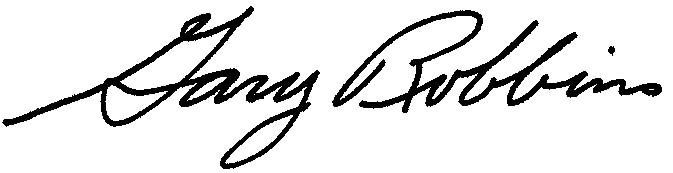 Gary Robbins